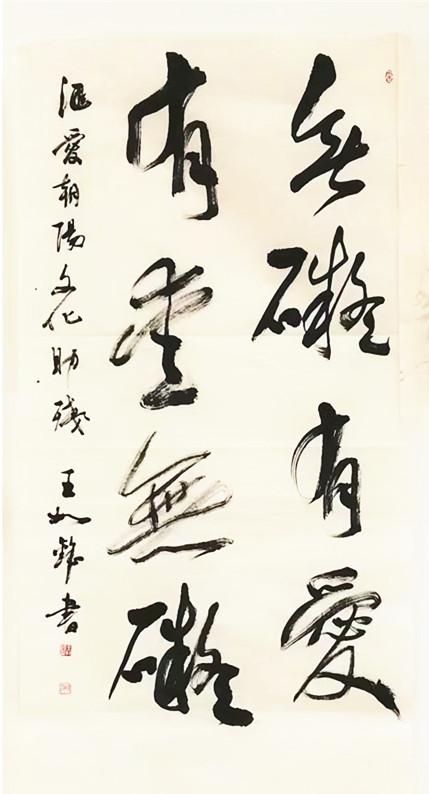 無礙有愛
有愛無礙
滙愛朝陽文化助殘 王如書